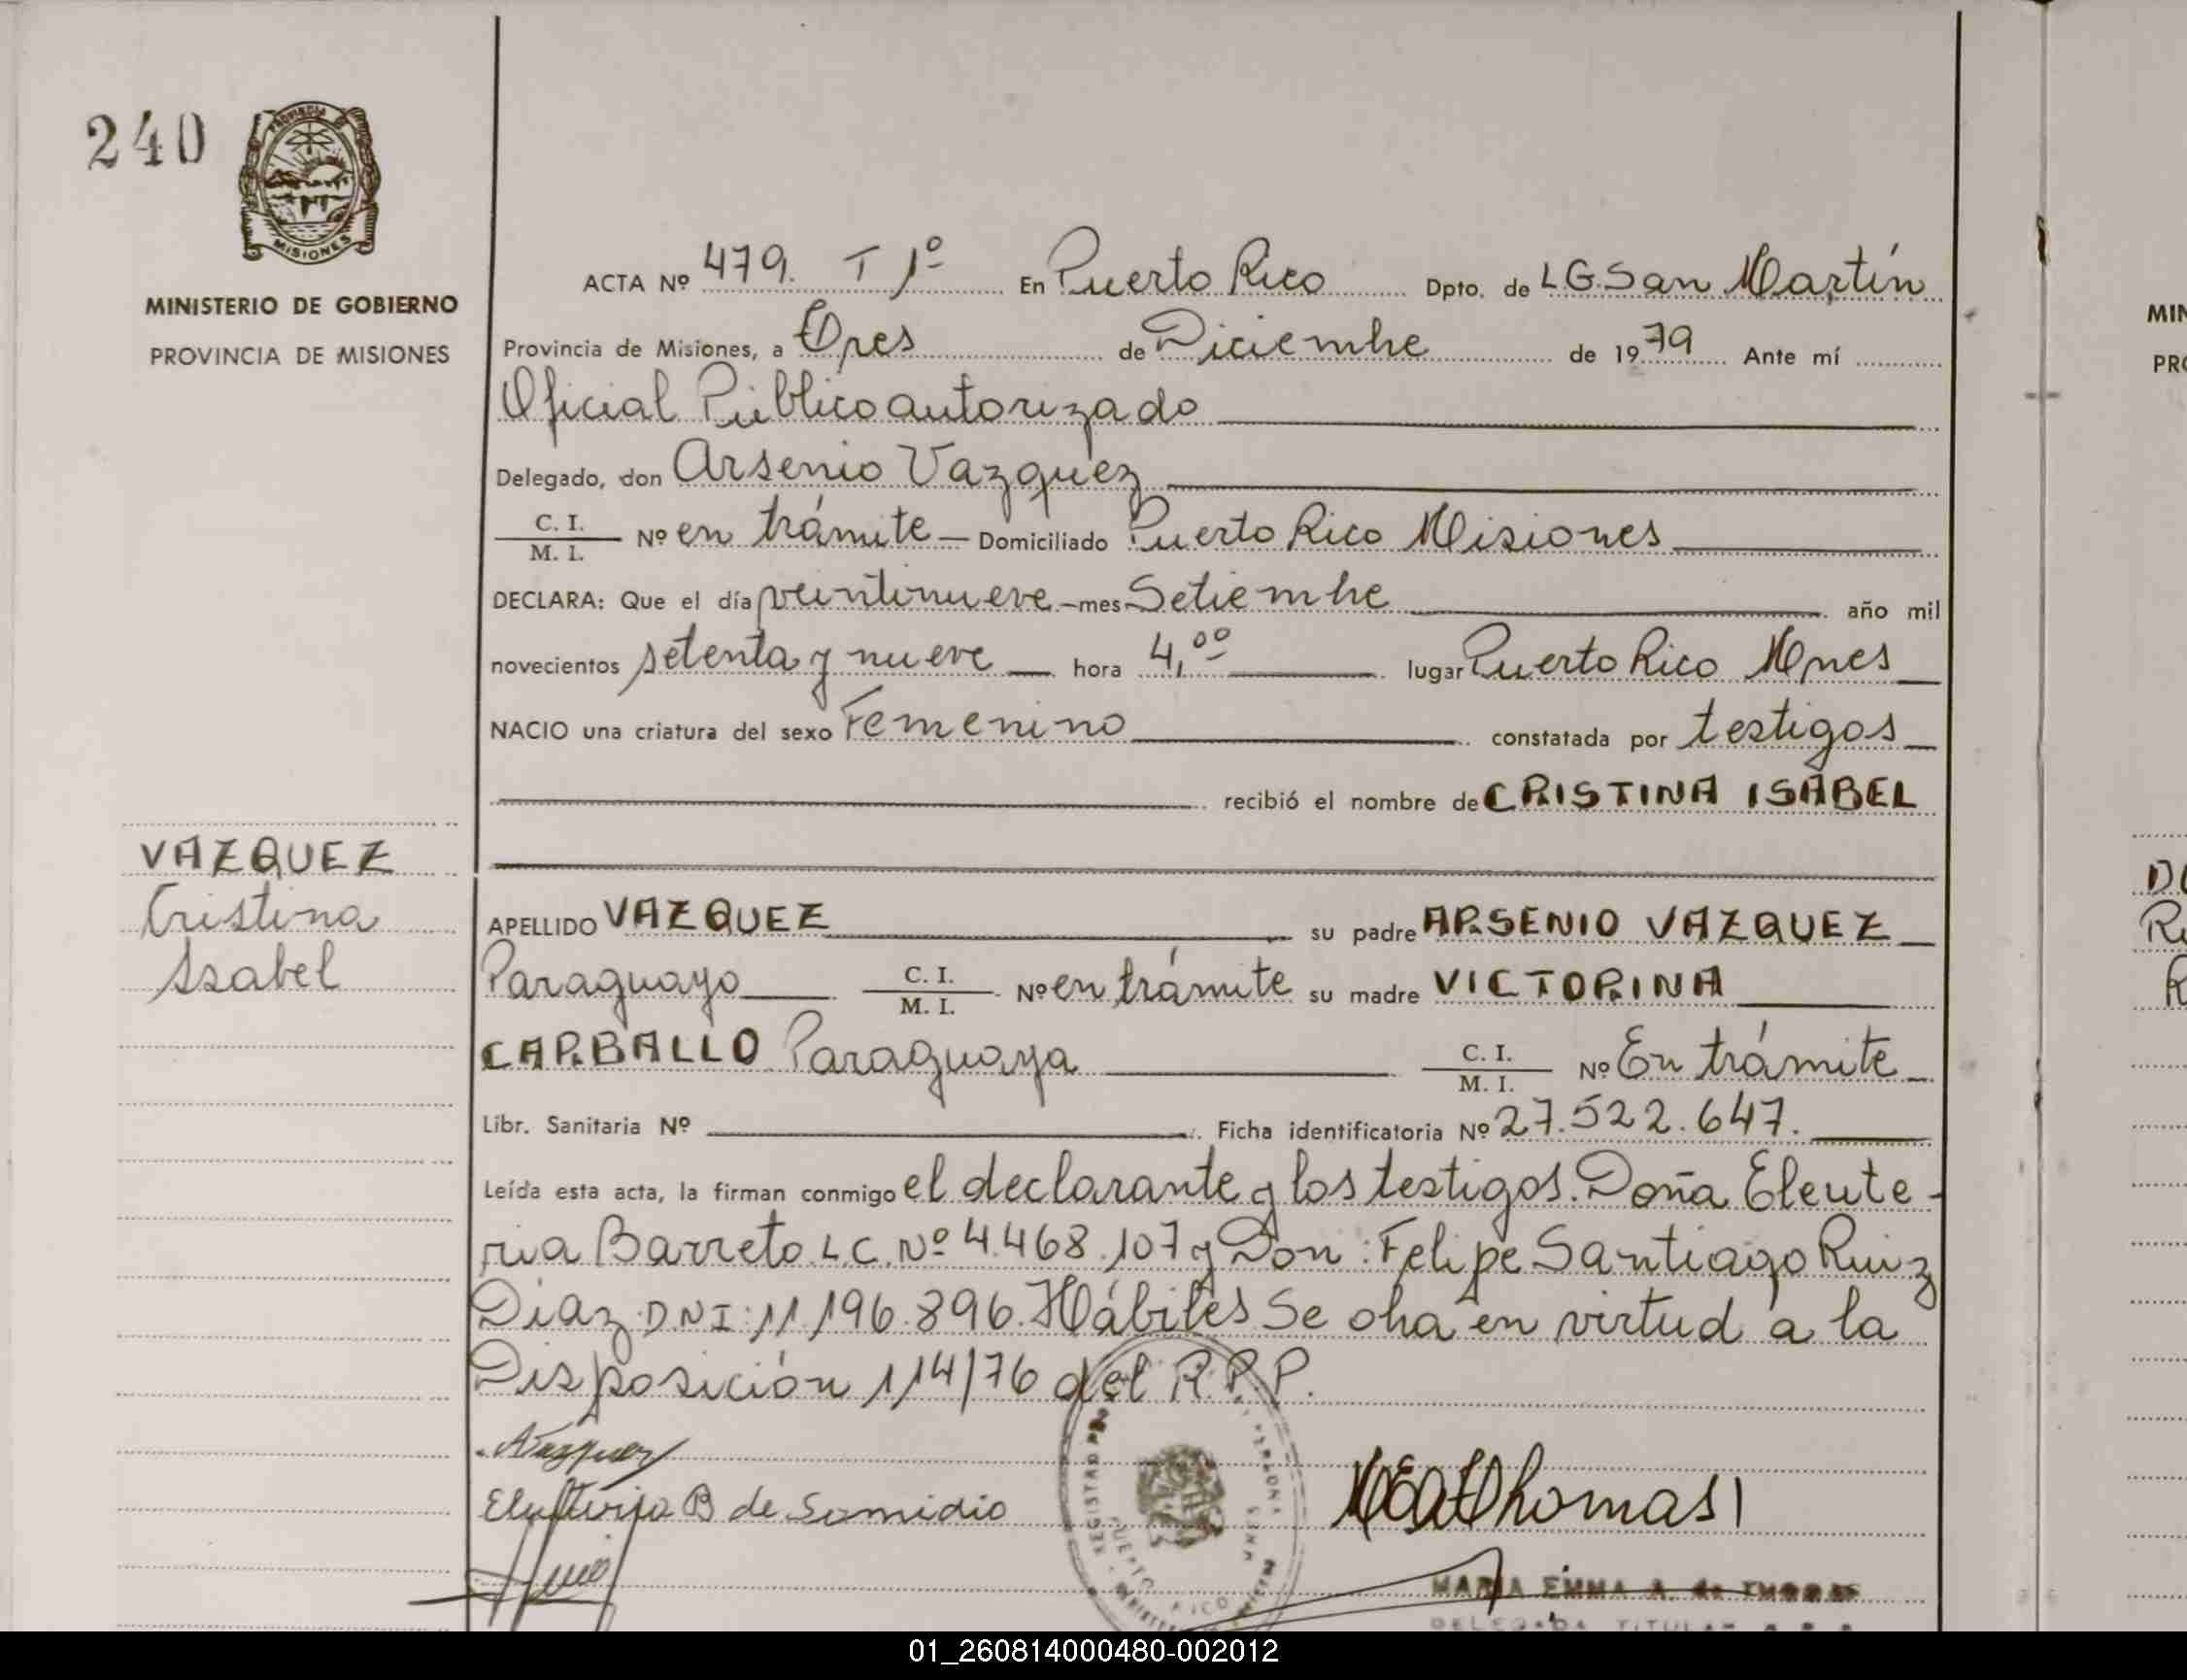 240
PROVINCIA DE
MISIONES
MINISTERIO DE GOBIERNO
PROVINCIA DE MISIONES
ACTA Nº 479. T 1º En Puerto Rico Dpto. de LG San Martín
Provincia de Misiones, a Tres de Diciembre de 1979 Ante mí
Oficial Público autorizado
Delegado, don Arsenio Vazquez
C. I.
M. I. Nº en trámite - Domiciliado Puerto Rico Misiones
DECLARA: Que el día veintinueve - mes Setiembre año mil
novecientos setenta y nueve hora 4,00 lugar Puerto Rico Mnes
NACIO una criatura del sexo Femenino constatada por testigos
recibió el nombre de CRISTINA ISABEL
VAZQUEZ
Cristina
Isabel
APELLIDO VAZQUEZ su padre ARSENIO VAZQUEZ
Paraguayo C. I. M. I. Nº en trámite su madre VICTORINA
CARBALLO Paraguaya C. I. M. I. Nº En trámite
Libr. Sanitaria Nº Ficha identificatoria Nº 27.522.647.
Leída esta acta, la firman conmigo el declarante y los testigos. Doña Eleute-
ria Barreto L.C. Nº 4.468.107 y Don: Felipe Santiago Ruiz
Diaz D.N.I: 11.196.896. Hábiles Se oha en virtud a la
Disposición 114/76 del R.P.P.
Vazquez
B de Somidio
MEAThomas
MARIA EMMA A. de THOMAS
DELEGADA TITULAR
REGISTRO
PUERTO RICO
MIN
PRO
DO
01_260814000480-002012